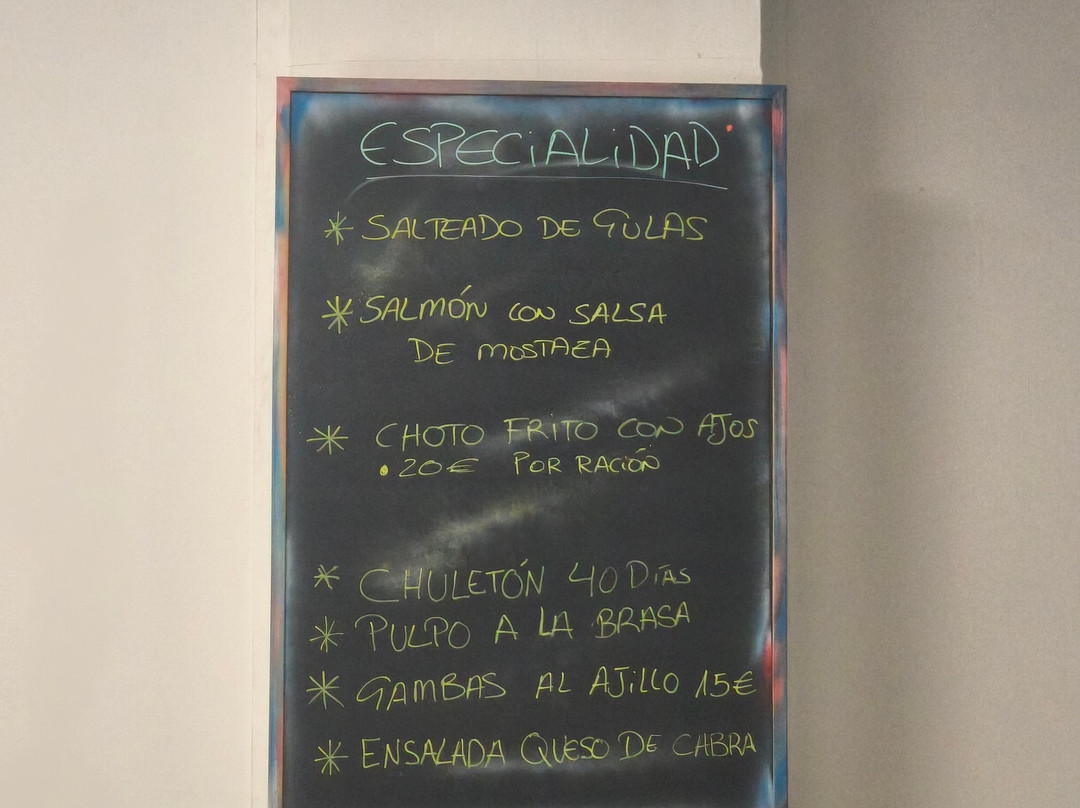 ESPECIALIDAD
* SALTEADO DE GULAS
* SALMÓN CON SALSA
DE MOSTAZA
* CHOTO FRITO CON AJOS
. 20€ POR RACIÓN
* CHULETÓN 40 DÍAS
* PULPO A LA BRASA
* GAMBAS AL AJILLO 15€
* ENSALADA QUESO DE CABRA